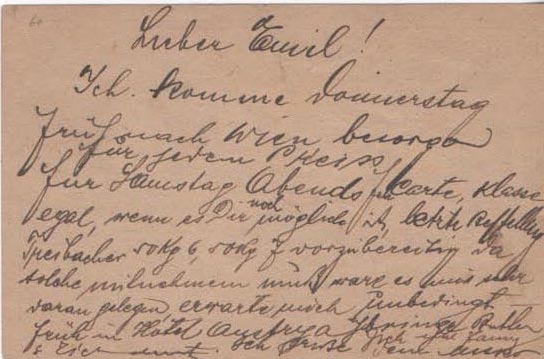 Lieber Emil!
Ich komme Donnerstag
früh nach Wien besorge
für jedem Preiss
für Samstag Abends Karte, Klasse
egal, wenn es Dir noch möglich ist,
Treibacher 50 Kg 6, 50 Kg 7 vorzubereiten, da
solche mitnehmen muß wäre es mir sehr
daran gelegen erwarte mich Umbedingt
früh in Hotel Austria bringe